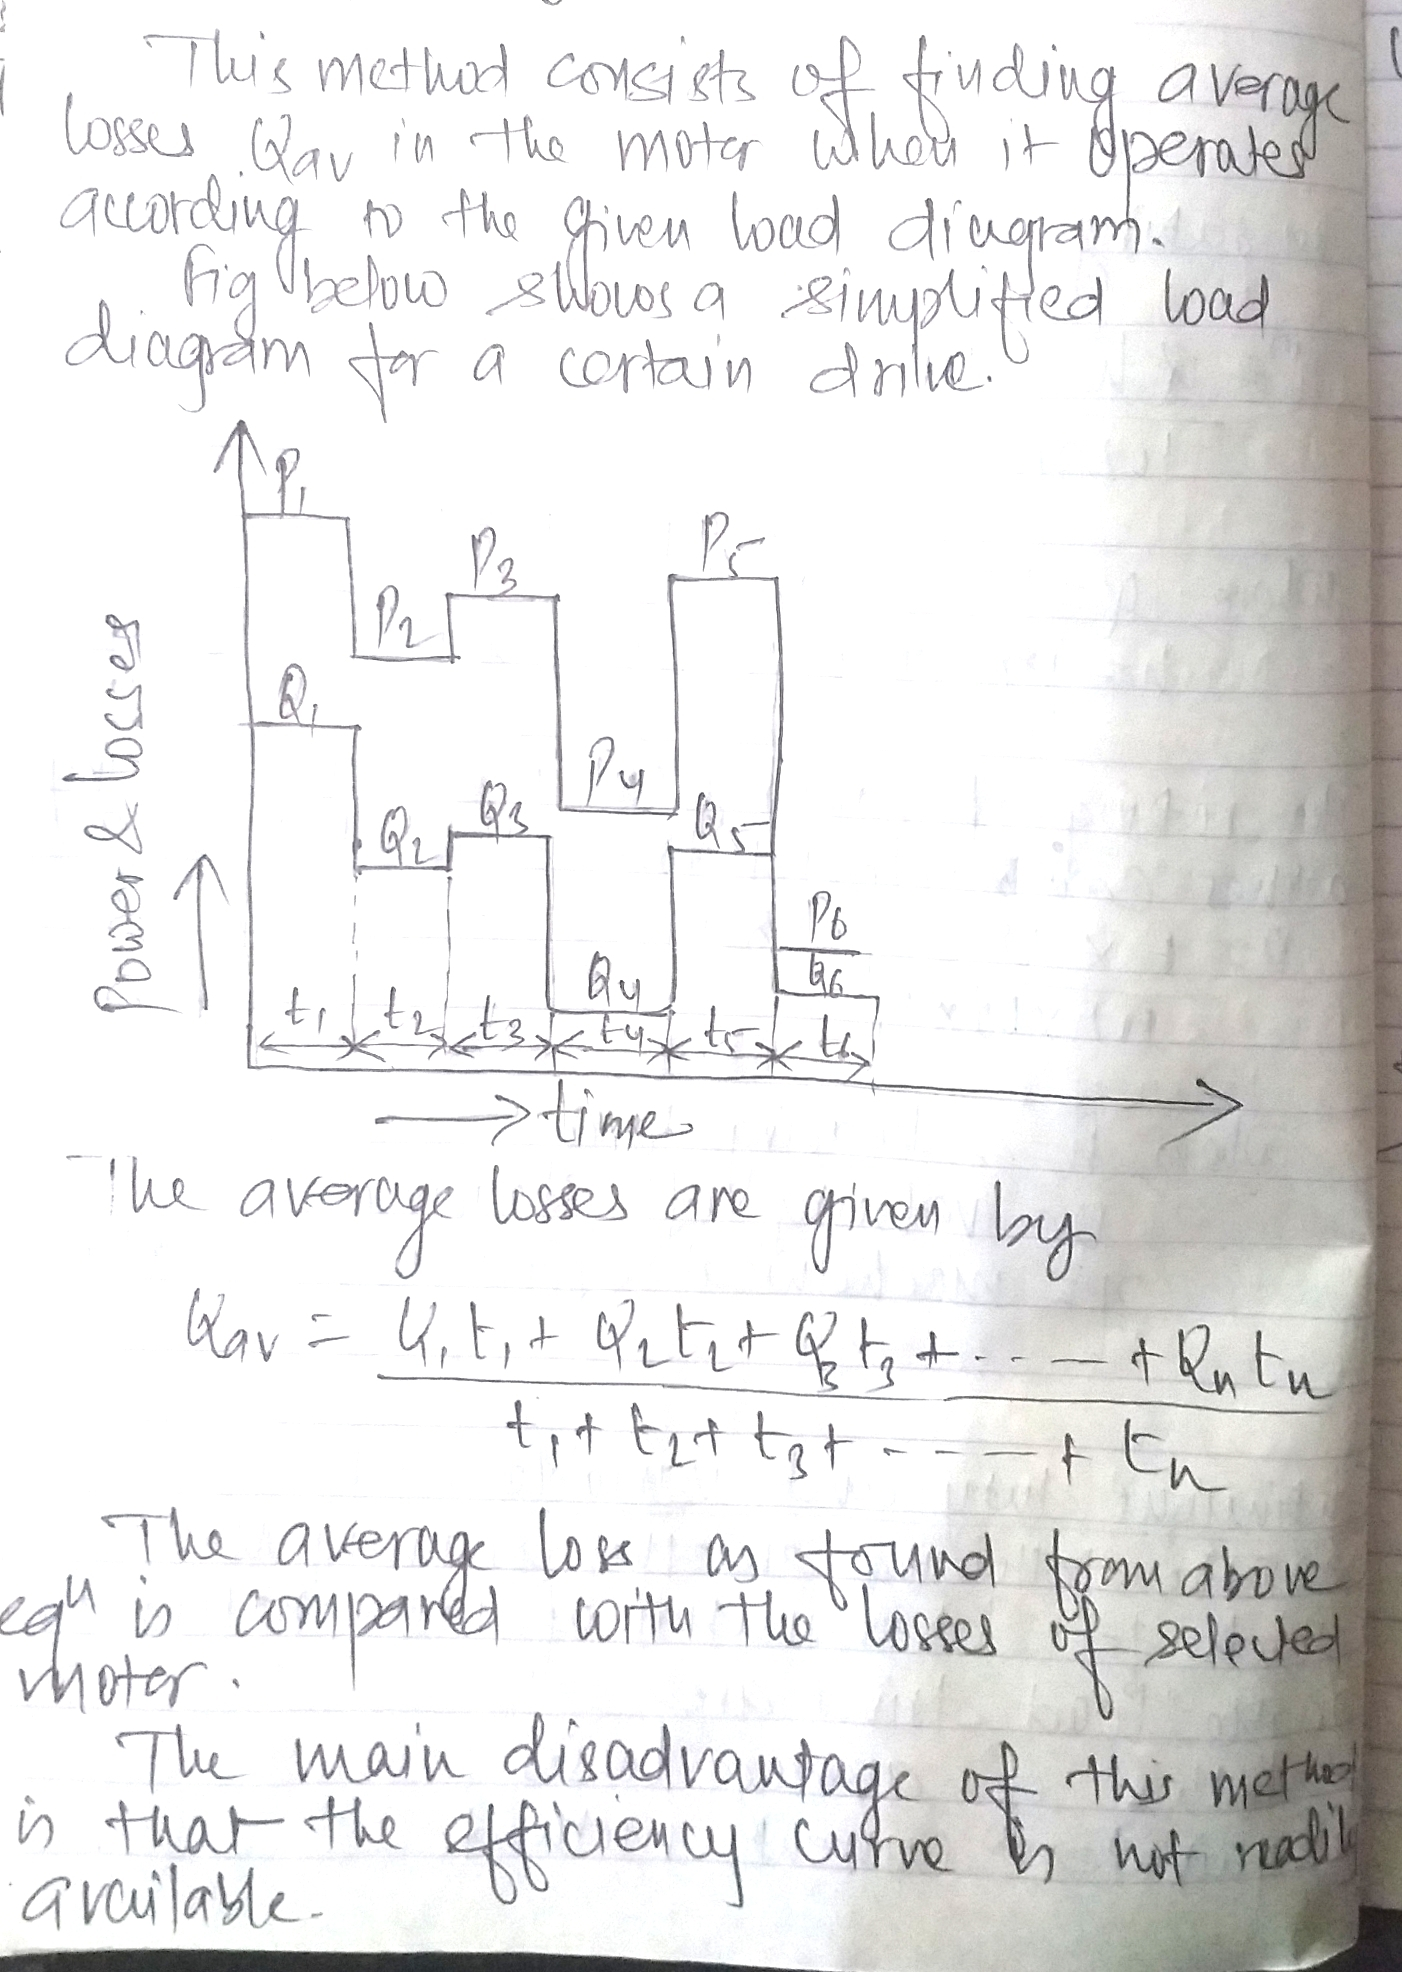 This method consists of finding average
losses Qav in the motor when it operates
according to the given load diagram.
Fig below shows a simplified load
diagram for a certain drive.
P1
P5
P3
P2
Q1
P4
Q3
Q5
Q2
P6
Q4
Q6
t1 t2 t3 t4 t5 t6
Power & losses
time
The average losses are given by
Qav = Q1t1 + Q2t2 + Q3t3 + ---- + Qntn
t1 + t2 + t3 + ---- + tn
The average loss as found from above
eqn is compared with the losses of selected
motor.
The main disadvantage of this method
is that the efficiency curve is not readily
available.